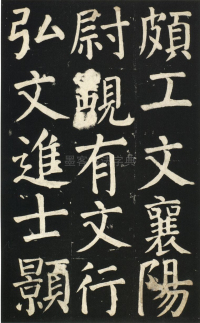 頗工文襄陽
尉靦有文行
弘文進士顥